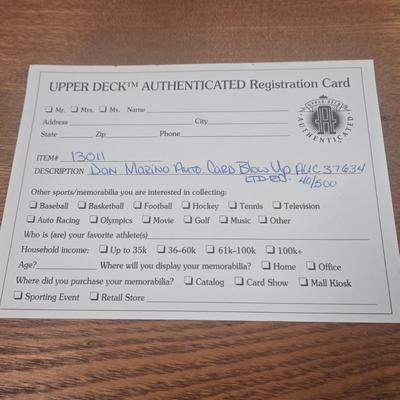 UPPER DECK™ AUTHENTICATED Registration Card
☐ Mr. ☐ Mrs. ☐ Ms. Name
Address City
State Zip Phone
UPPER DECK
AUTHENTICATED
ITEM# 13011
DESCRIPTION DAN MARINO AUTO. CARD BLOW UP AUC 37634
LTD. ED. 40/500
Other sports/memorabilia you are interested in collecting:
☐ Baseball ☐ Basketball ☐ Football ☐ Hockey ☐ Tennis ☐ Television
☐ Auto Racing ☐ Olympics ☐ Movie ☐ Golf ☐ Music ☐ Other
Who is (are) your favorite athlete(s)
Household income: ☐ Up to 35k ☐ 36–60k ☐ 61k–100k ☐ 100k+
Age? Where will you display your memorabilia? ☐ Home ☐ Office
Where did you purchase your memorabilia? ☐ Catalog ☐ Card Show ☐ Mall Kiosk
☐ Sporting Event ☐ Retail Store